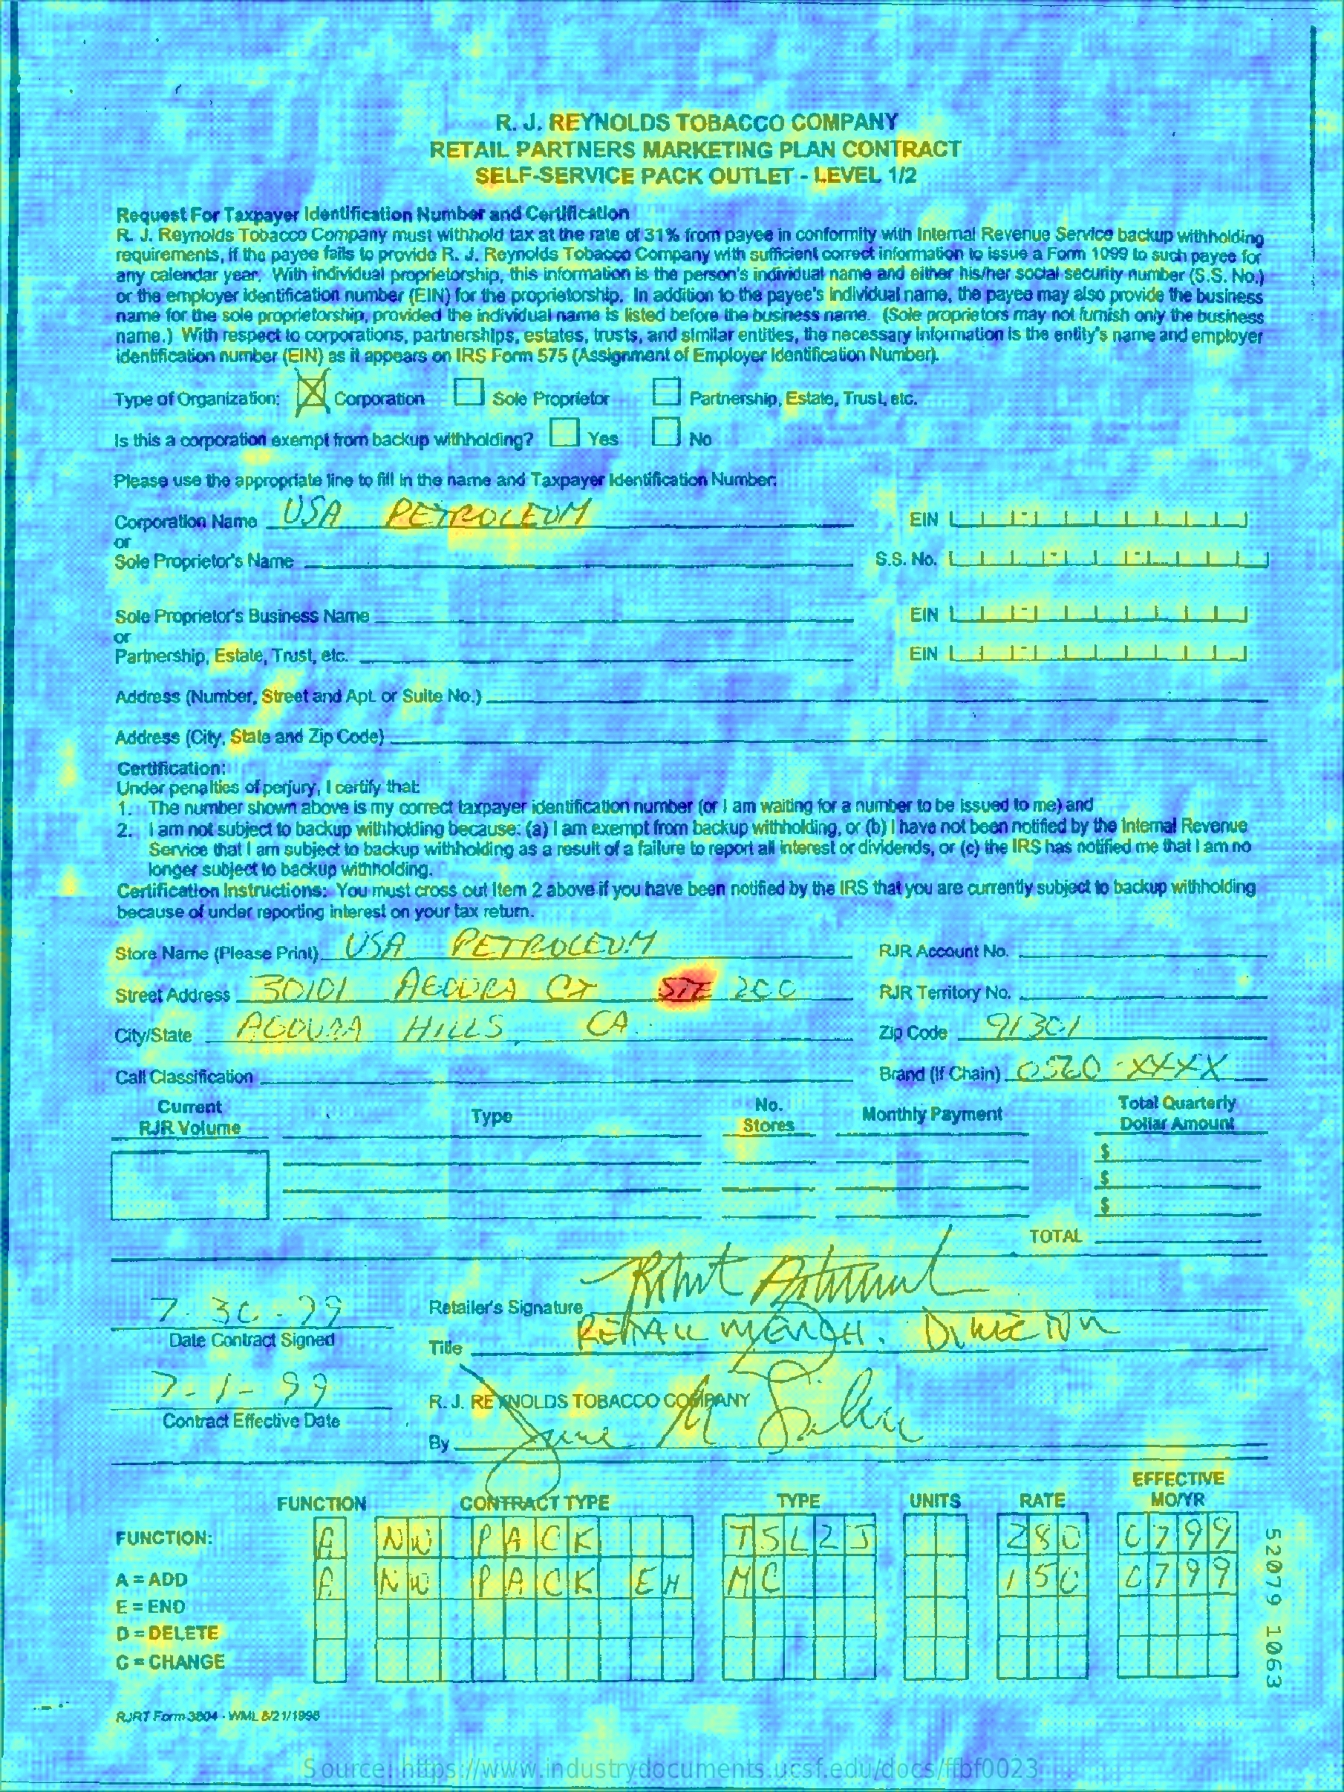 R. J. REYNOLDS TOBACCO COMPANY
RETAIL PARTNERS MARKETING PLAN CONTRACT
SELF-SERVICE PACK OUTLET - LEVEL 1/2
Request For Taxpayer Identification Number and Certification
R. J. Reynolds Tobacco Company must withhold tax at the rate of 31% from payee in conformity with Internal Revenue Service backup withholding
requirements, if the payee fails to provide R. J. Reynolds Tobacco Company with sufficient correct information to issue a Form 1099 to such payee for
any calendar year. With individual proprietorship, this information is the person's individual name and either his/her social security number (S.S. No.)
or the employer identification number (EIN) for the proprietorship. In addition to the payee's individual name, the payee may also provide the business
name for the sole proprietorship, provided the individual name is listed before the business name. (Sole proprietors may not furnish only the business
name.) With respect to corporations, partnerships, estates, trusts, and similar entities, the necessary information is the entity's name and employer
identification number (EIN) as it appears on IRS Form 575 (Assignment of Employer Identification Number).
Type of Organization: X Corporation Sole Proprietor Partnership, Estate, Trust, etc.
Is this a corporation exempt from backup withholding? Yes No
Please use the appropriate line to fill in the name and Taxpayer Identification Number:
Corporation Name USA PETROLEUM EIN
or
Sole Proprietor's Name S.S. No.
Sole Proprietor's Business Name EIN
or
Partnership, Estate, Trust, etc. EIN
Address (Number, Street and Apt. or Suite No.)
Address (City, State and Zip Code)
Certification:
Under penalties of perjury, I certify that:
1. The number shown above is my correct taxpayer identification number (or I am waiting for a number to be issued to me) and
2. I am not subject to backup withholding because: (a) I am exempt from backup withholding, or (b) I have not been notified by the Internal Revenue
Service that I am subject to backup withholding as a result of a failure to report all interest or dividends, or (c) the IRS has notified me that I am no
longer subject to backup withholding.
Certification Instructions: You must cross out Item 2 above if you have been notified by the IRS that you are currently subject to backup withholding
because of under reporting interest on your tax return.
Store Name (Please Print) USA PETROLEUM RJR Account No.
Street Address 30101 AGOURA CT STE 200 RJR Territory No.
City/State AGOURA HILLS, CA Zip Code 91301
Call Classification Brand (If Chain) 0560-XXXX
Current RJR Volume Type No. Stores Monthly Payment Total Quarterly Dollar Amount
$
$
$
TOTAL
7-30-99 Retailer's Signature Robert
Date Contract Signed Title RETAIL MERCH. DIRECTOR
7-1-99 R. J. REYNOLDS TOBACCO COMPANY
Contract Effective Date By June M
FUNCTION CONTRACT TYPE TYPE UNITS RATE EFFECTIVE MO/YR
FUNCTION: A NW PACK TSL2J 280 0799
A = ADD A NW PACK EH MC 150 0799
E = END
D = DELETE
C = CHANGE
52079 1063
RJRT Form 3804 - WML 8/21/1998
Source: https://www.industrydocuments.ucsf.edu/docs/ffbf0023